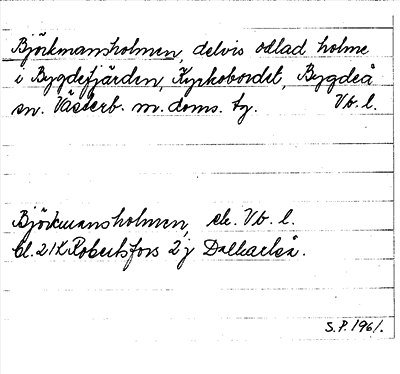 Björkmansholmen, delvis odlad holme
i Bygdefjärden, Kyrkobordet, Bygdeå
sn. Västerb. m. doms. tg. Vb. l.
Björkmansholmen, ek. Vb. l.
bl. 21K Robertsfors 2 j Dalkarlså.
S.P. 1961.